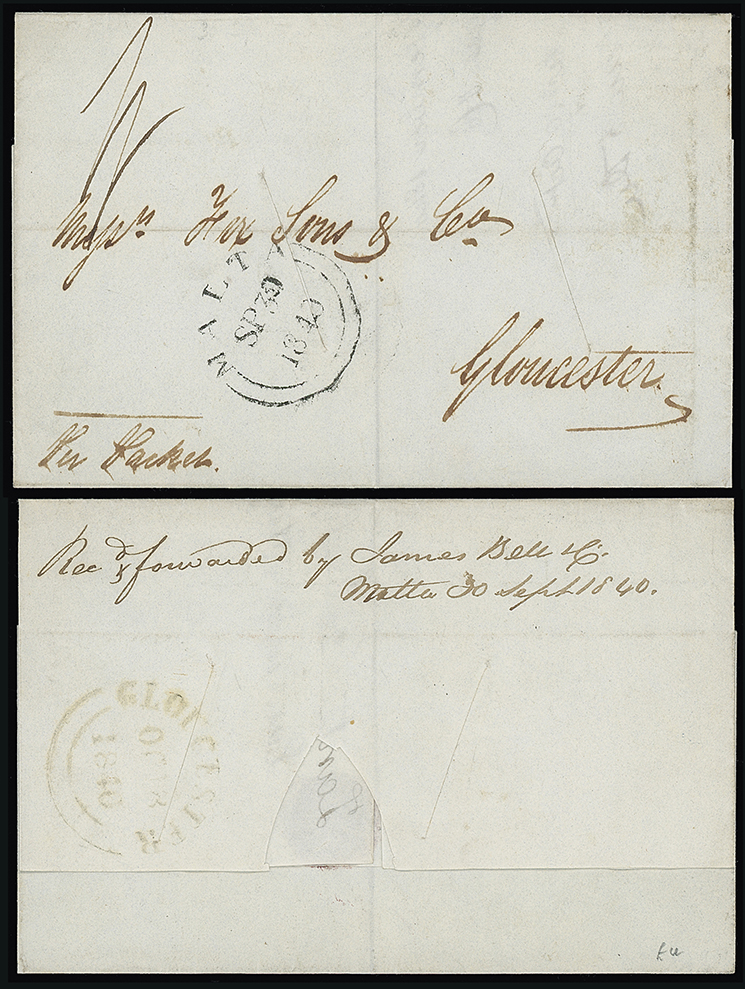 Messrs Fox Sons & Co
MALTA
SP 30
1840
Gloucester
Per Packet.
Recd & forwarded by James Bell & Co.
Malta 30 Sept. 1840.
GLOUCESTER
OC
1840